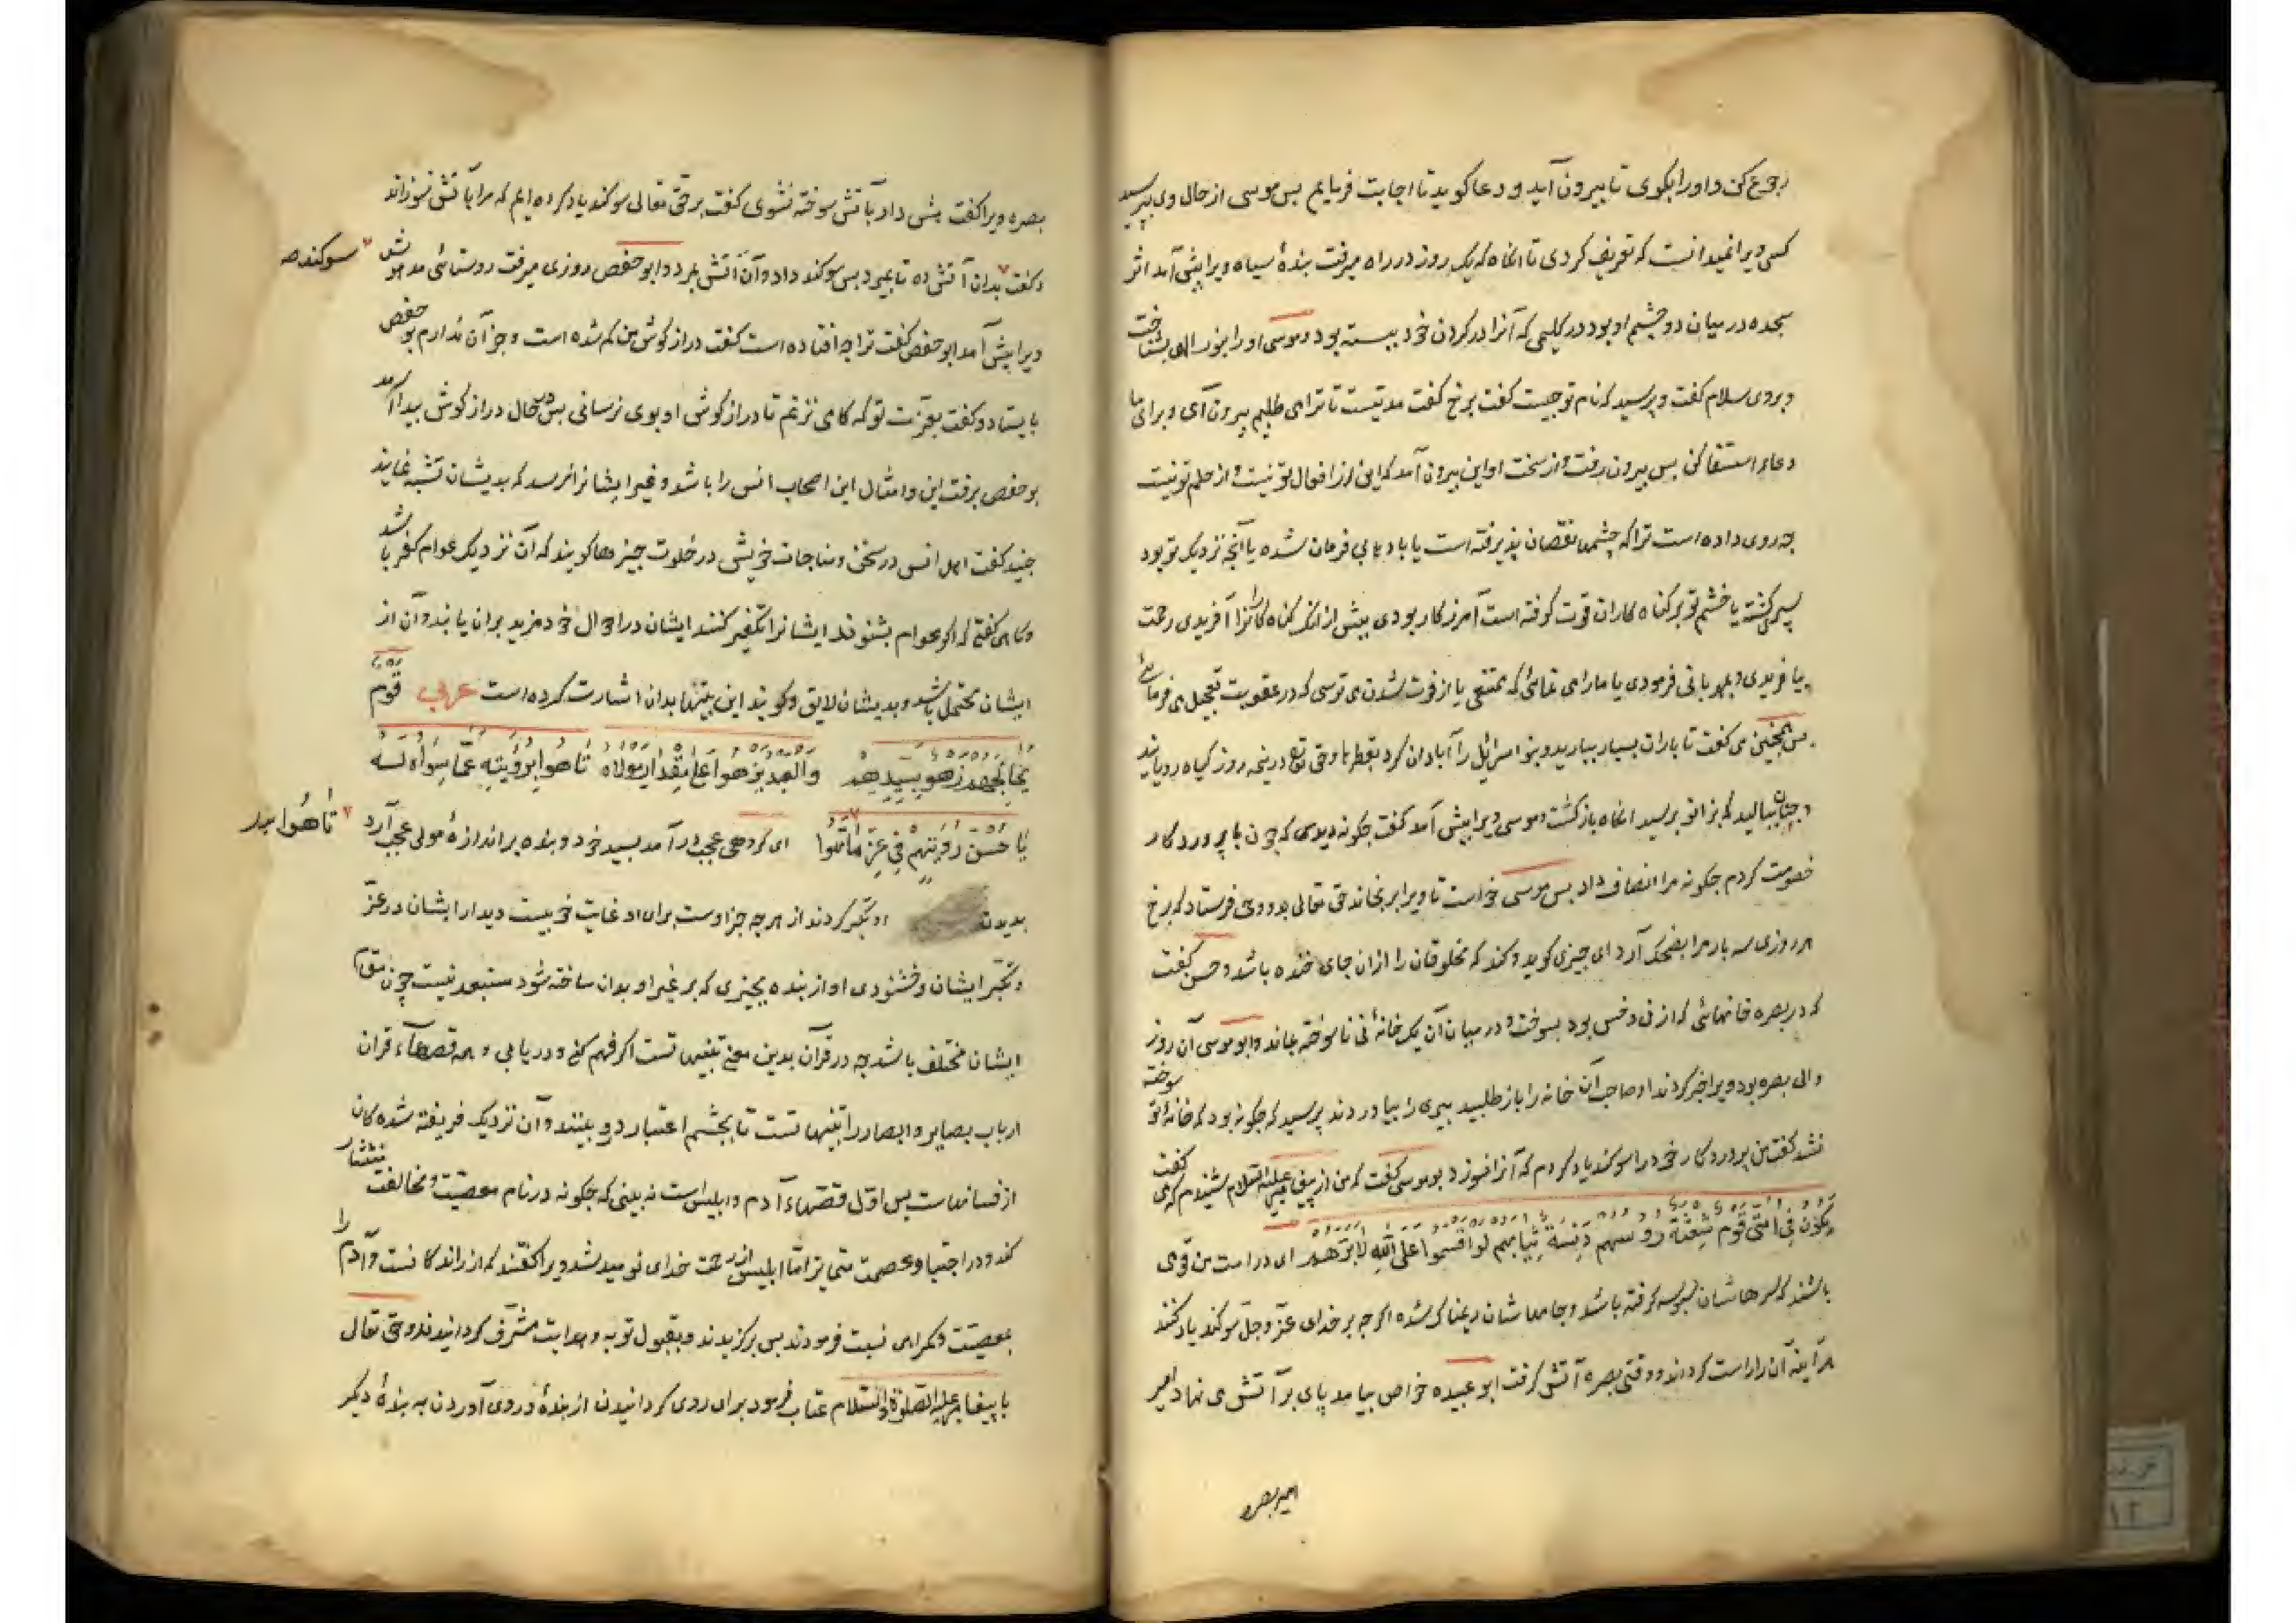 رجوع کن و او را بکوی تا بیرون آید و دعا کوید تا اجابت فرمایم بس موسی از حال وی بپرسید
کسی ویرا نمیدانست که تعریف کردی تا انکاه که یک روز در راه میرفت بندۀ سیاه ویرا پیش آمد اثر
سجده در میان دو چشم او بود در کلیمی که آنرا در کردن خود ببسته بود و موسی او را بنور الهی بشناخت
و بروی سلام کفت و پرسید که نام تو چیست کفت برخ کفت مدتیست تا ترا می طلبم بیرون آی و برای ما
دعاء استسقا کن بس بیرون رفت و از سخت او این بیرون آمد که این از افعال تو نیست و از حلم تو نیست
چه روی داده است ترا که چشمها نقصان پذیرفته است یا باد بی فرمان شده یا آنچه نزدیک تو بود
سپری کشته یا خشم تو بر کناه کاران قوت کرفته است آمرزکار بودی پیش از انکه کناه کارانرا آفریدی رحمت
بیافریدی و بمهربانی فرمودی یا ما را می نمائی که ممتنعی یا از فوت شدن می ترسی که در عقوبت تعجیل می فرمائی
بس همچنین می کفت تا باران بسیار ببارید و بنو اسرائیل را آبادان کرد بقطرها و حق تع در نیم روز کیاه رویانید
و چنان ببالید که بزانو برسید انکاه بازکشت و موسی ویرا پیش آمد کفت چکونه دیدی که چون با پروردکار
خصومت کردم چکونه مرا انصاف داد بس موسی خواست تا ویرا برنجاند حق تعالی بدو وحی فرستاد که برخ
هر روزی سه بار مرا بضحک آرد ای چیزی کوید و کند که مخلوقان را از ان جای خنده باشد و حسن کفت
که در بصره خانهائی که از نی و خس بود بسوخت و در میان آن یک خانۀ نی ناسوخته بماند و ابو موسی آن روز
والی بصره بود ویرا خبر کردند او صاحب آن خانه را باز طلبید پیری را بیاوردند پرسید که چکونه بود که خانۀ تو سوخته
نشد کفت من پروردکار خود را سوکند یاد کردم که آنرا نسوزد بو موسی کفت که من از پیغامبر علیه السلام شنیدم که می کفت
یکون فی امتی قوم شعثة رؤسهم دنسة ثیابهم لو اقسموا علی الله لابرّهم ای در امت من قومی
باشند که سرهاشان کرفته باشد و جامهاشان ریمناک شده اکر چه بر خدای عزّ و جلّ سوکند یاد کنند
هر آینه آن را راست کرداند و وقتی بصره آتش کرفت ابو عبیده خواص بیامد پای بر آتش می نهاد امیر
امیر بصره
بصره ویرا کفت با آتش سوخته نشوی کفت بر حق تعالی سوکند یاد کرده ایم که مرا بآتش نسوزاند
و کفت بدان آتش ده تا بمیرد بس سوکند داد و آن آتش بمرد و ابو حفص روزی میرفت روستائی مدهوش
سوکند صه
ویرا پیش آمد ابو حفص کفت ترا چه افتاده است کفت درازکوش من کم شده است و جز آن ندارم بو حفص
بایستاد و کفت بعزّت تو که کامی نزنم تا درازکوش او بوی نرسانی بس در حال درازکوش پیدا آمد
بو حفص برفت این و امثال این اصحاب انس را باشد و غیر ایشانرا نرسد که بدیشان تشبه نمایند
جنید کفت اهل انس در سخن و مناجات خویش در خلوت چیزها کویند که آن نزدیک عوام کفر باشد
و کاهی کفتی که اکر عوام بشنوند ایشانرا تکفیر کنند ایشان در احوال خود مزید بران یابند و آن از
ایشان محتمل باشد و بدیشان لایق و کویند این بیتها بدان اشارت کرده است عربی قوم
یخالجهم زهو بسیدهم والعبد یزهوا علی مقدار مولاه تاهوا برؤیته عمّا سواه له
یا حسن رؤیتهم فی عزّ ما تاهوا ای کروهی عجب در آمد بسید خود و بنده بر اندازۀ مولی عجب آرد
تاهوا به
بدیدن او تکبر کردند از هر چه جز اوست برای او غایت خوبیست دیدار ایشان در عزّ
و تکبّر ایشان و خشنودی او از بنده بچیزی که بر غیر او بدان ساخته شود مستبعد نیست چون مقام
ایشان مختلف باشد چه در قرآن بدین معنی تنبیهاتست اکر فهم کنی و دریابی و همه قصهاء قرآن
ارباب بصایر و ابصار را تنبیهاتست تا بچشم اعتبار درو بینند و آن نزدیک فریفته شدکان
از فسانهاست بس اوّل قصّهاء آدم و ابلیس است نه بینی که چکونه در نام معصیت و مخالفت
کند و در اجتبا و عصمت متمایز امّا ابلیس از رحمت خدای نومید شد ویرا کفتند که از راندکانست و آدم را
بمعصیت و کمراهی نسبت فرمودند بس برکزیدند و بقبول توبه و هدایت مشرّف کردانیدند و حق تعالی
با پیغامبر علیه الصلوة والسلام عتاب فرمود برای روی کردانیدن از بندۀ و روی آوردن به بندۀ دیکر